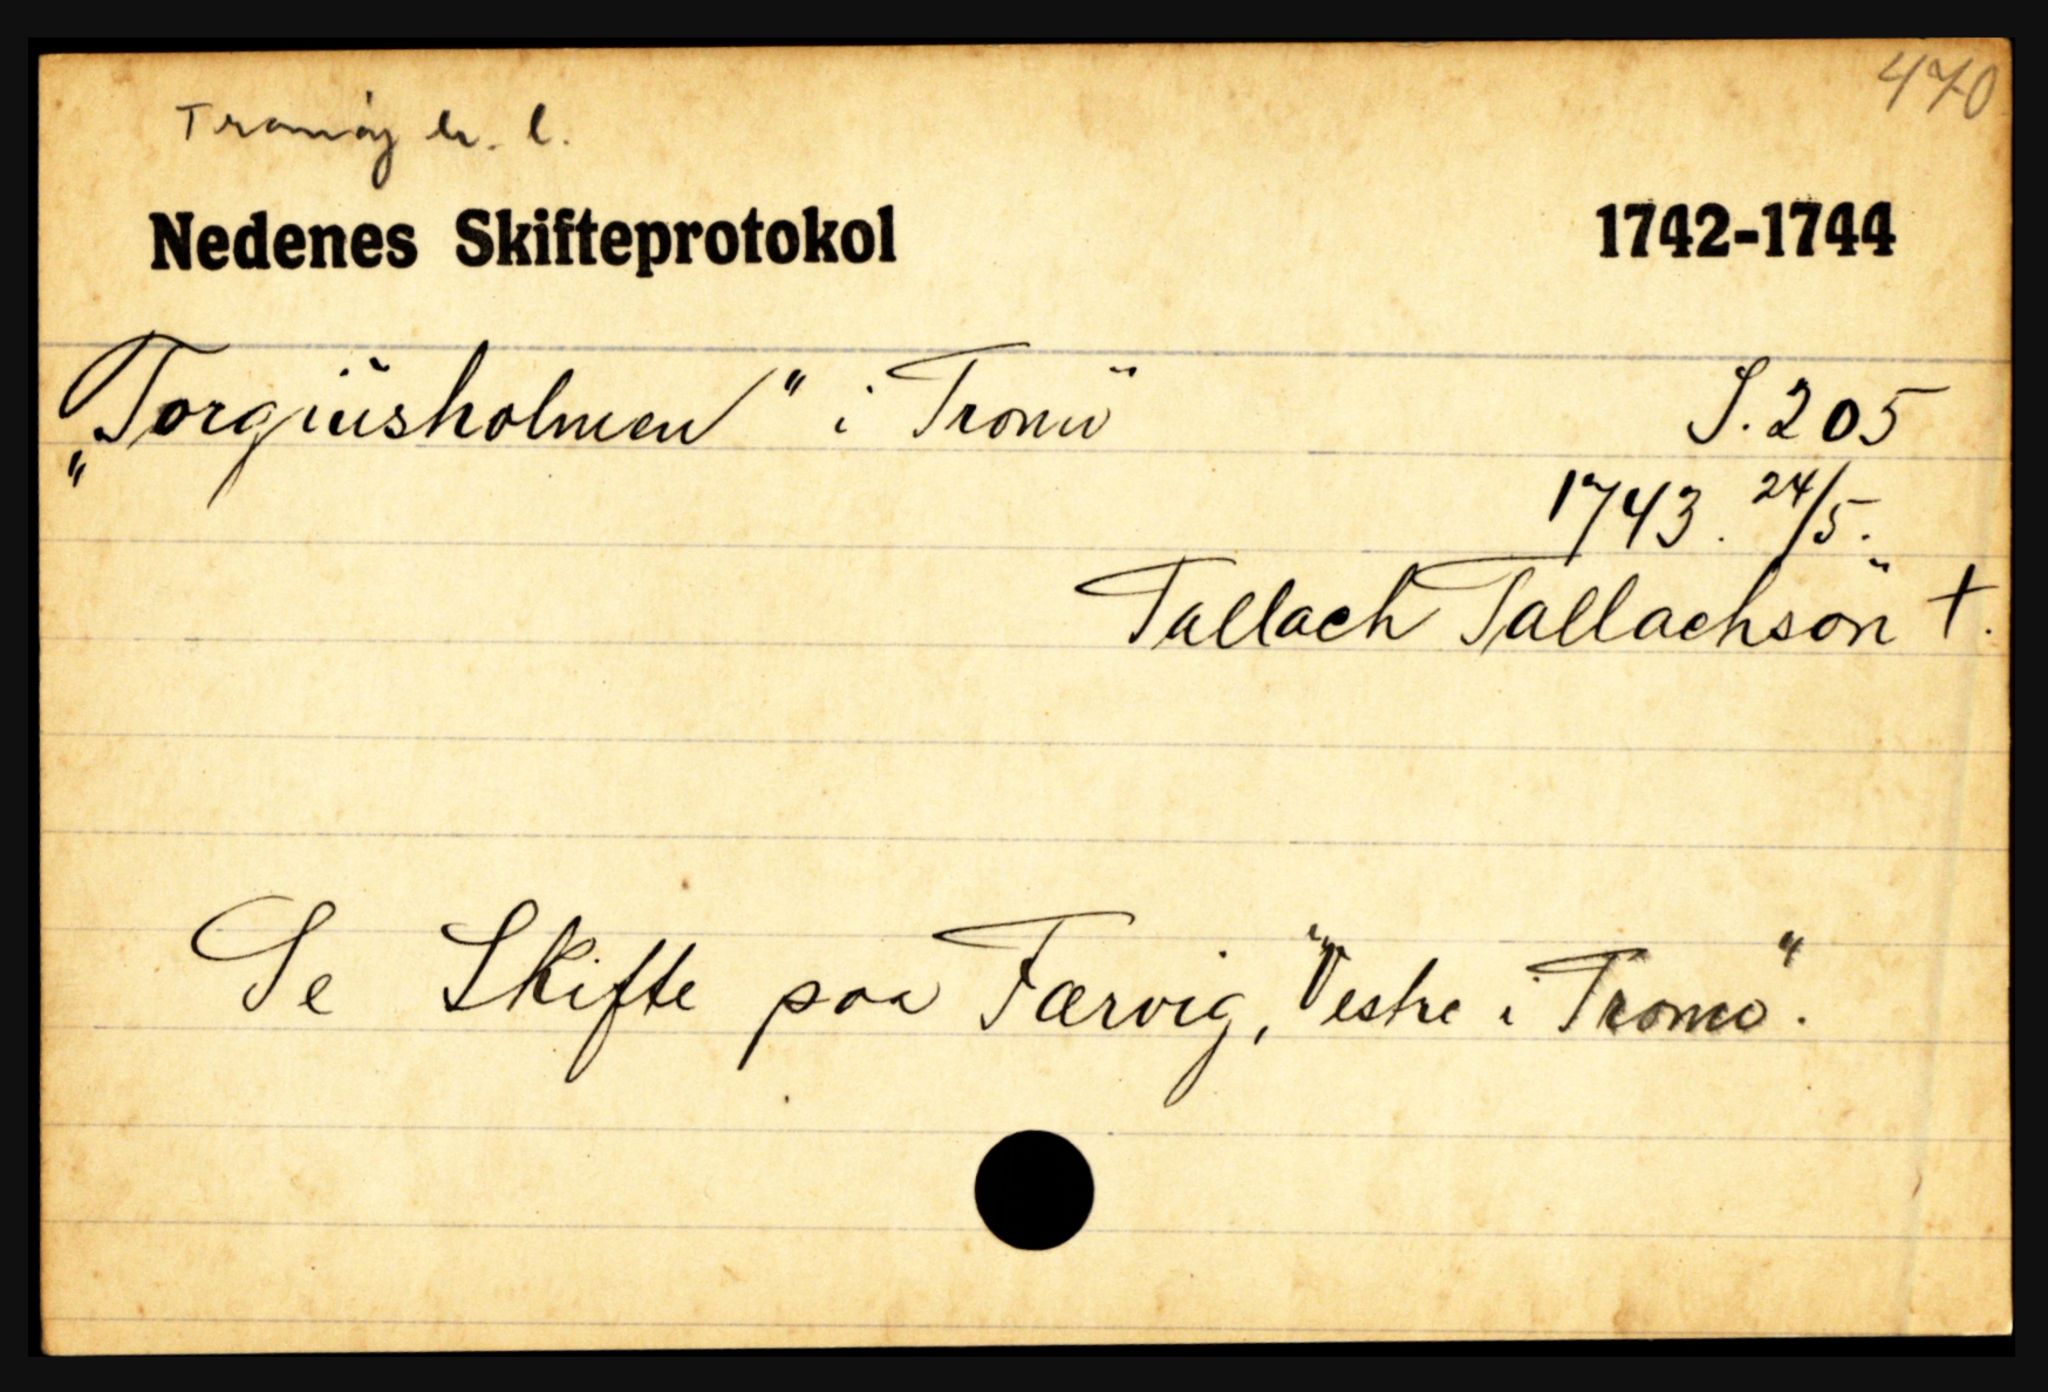 470
Tromøy h. l.
Nedenes Skifteprotokol 1742-1744
„Torgiüsholmen" i Tromö S. 205
1743. 24/5.
Tallach Tallachsön †.
Se Skifte paa Færvig, "Vestre i Tromö".